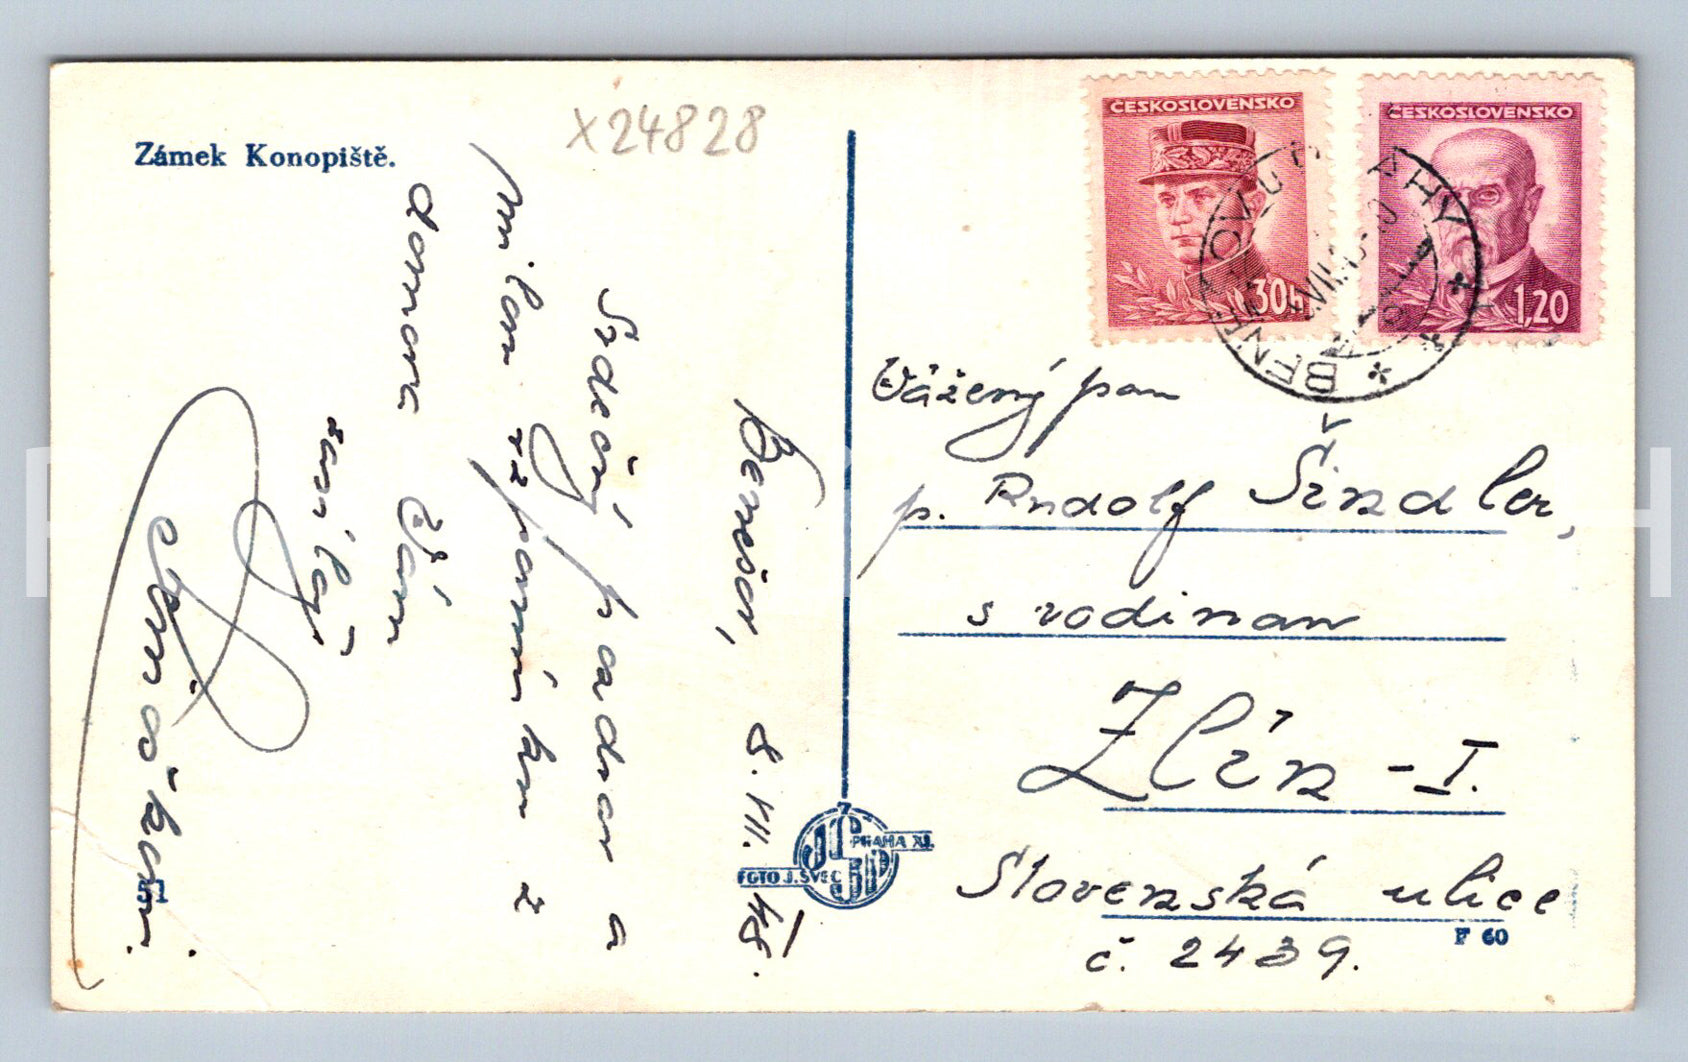 Zámek Konopiště.
X24828
Benešov, 8.VII.48.
Srdečný pozdrav a
vzpomínku z
domova Vám
zasílají
ČESKOSLOVENSKO
30h
ČESKOSLOVENSKO
1,20
BENEŠOV U PRAHY
Vážený pan
p. Rudolf Šindler,
s rodinou
Zlín - I.
Slovenská ulice
č. 2439.
FOTO J. ŠVEC
PRAHA XI.
51
F 60